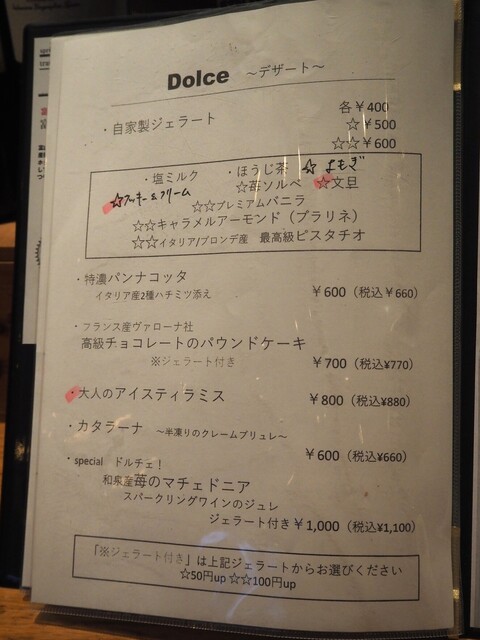 Dolce ～デザート～
・自家製ジェラート 各￥400
☆￥500
☆☆￥600
・塩ミルク ・ほうじ茶 ☆よもぎ
☆クッキー&クリーム ☆苺ソルベ ☆文旦
☆☆プレミアムバニラ
☆☆キャラメルアーモンド（プラリネ）
☆☆イタリア/ブロンテ産 最高級ピスタチオ
・特濃パンナコッタ
イタリア産2種ハチミツ添え ￥600（税込￥660）
・フランス産ヴァローナ社
高級チョコレートのパウンドケーキ
※ジェラート付き ￥700（税込¥770）
・大人のアイスティラミス ￥800（税込¥880）
・カタラーナ ～半凍りのクレームブリュレ～
￥600（税込¥660）
・special ドルチェ！
和泉産苺のマチェドニア
スパークリングワインのジュレ
ジェラート付き￥1,000（税込¥1,100）
「※ジェラート付き」は上記ジェラートからお選びください
☆50円up ☆☆100円up